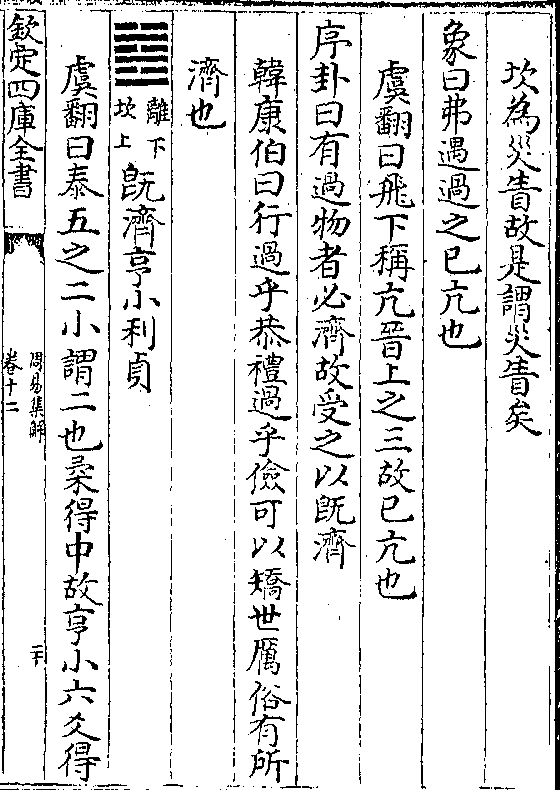 坎為災眚故是謂災眚矣
象曰弗遇過之已亢也
虞翻曰飛下稱亢晉上之三故已亢也
序卦曰有過物者必濟故受之以旣濟
韓康伯曰行過乎恭禮過乎儉可以矯世厲俗有所
濟也
離下
坎上
旣濟亨小利貞
虞翻曰泰五之二小謂二也柔得中故亨小六爻得
欽定四庫全書
周易集解
卷十二
二十